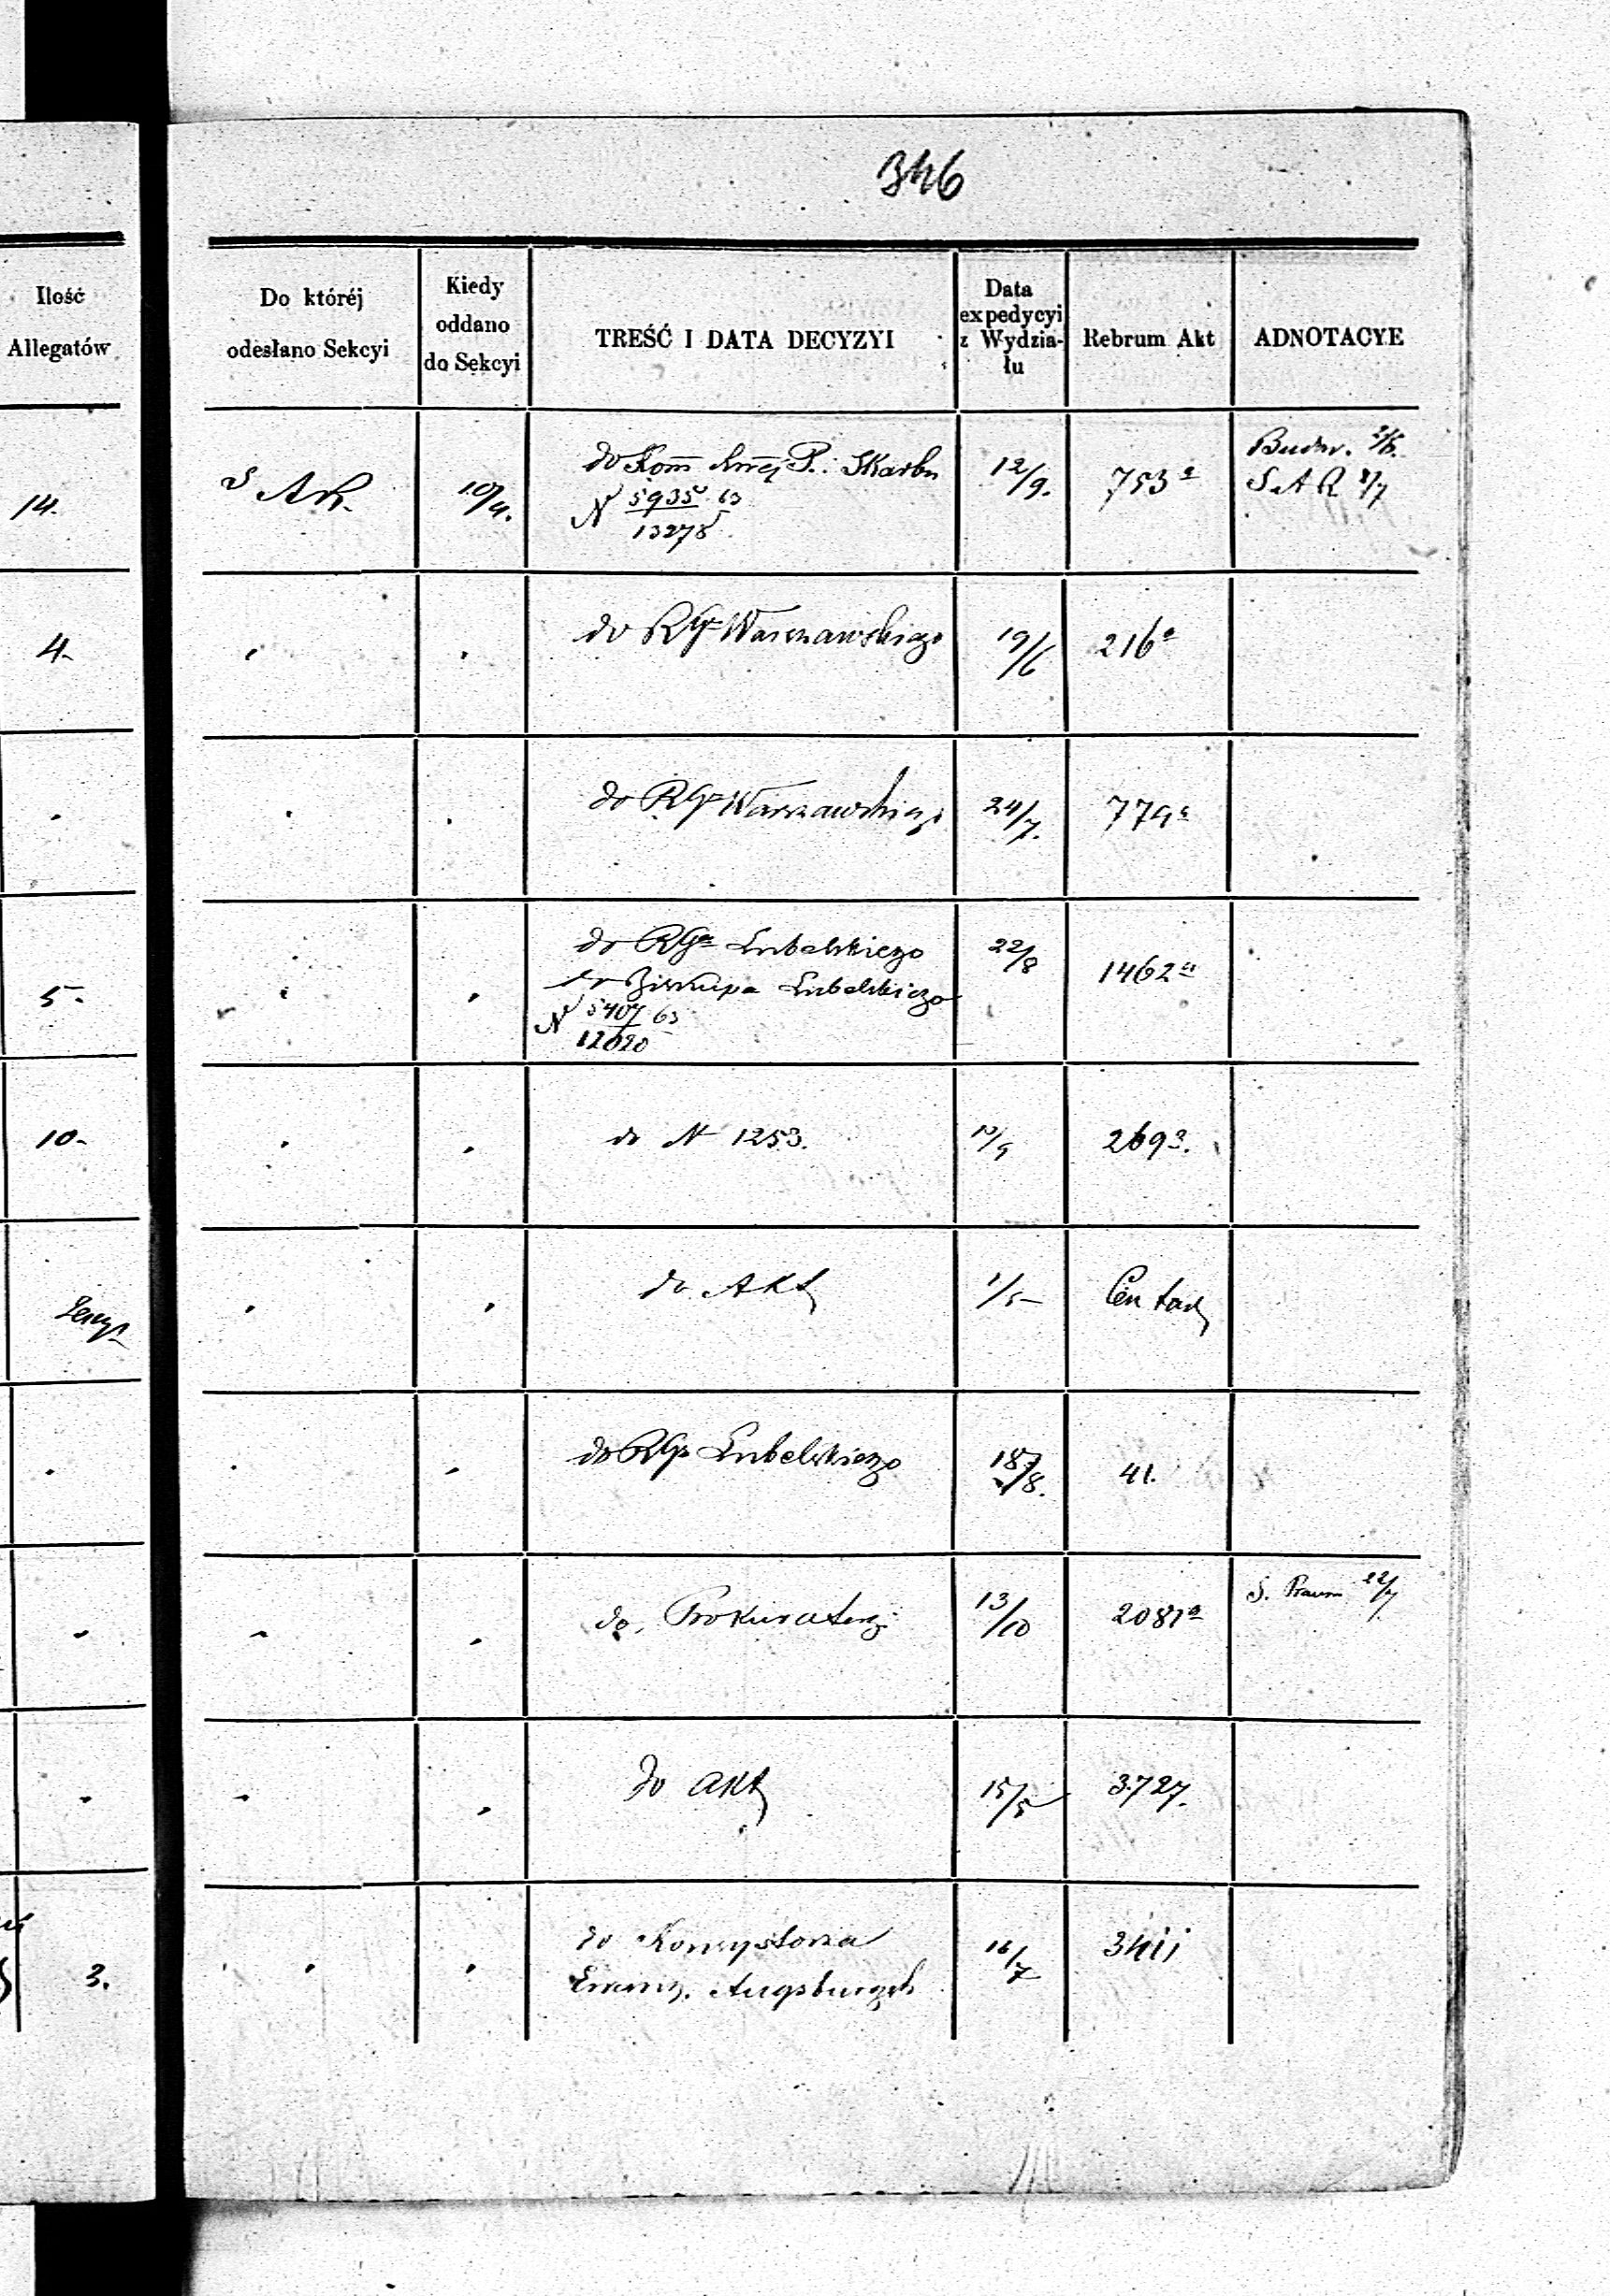 346
Ilość
Allegatów
Do któréj
odesłano Sekcyi
Kiedy
oddano
do Sekcyi
TREŚĆ I DATA DECYZYI
Data
expedycyi
z Wydzia-
łu
Rebrum Akt
ADNOTACYE
14.
S AR.
10/4.
do Kom P. Skarbu
N 5935 63
13278
12/9.
753 a
S. A R 8/7
4.
do RGu Warszawskiego
19/6
216 a
do RGu Warszawskiego
24/7.
774 a
5.
do RGu Lubelskiego
do Biskupa Lubelskiego
N 5407 63
12020
22/8
1462 a
10.
do N 1253.
2693.
do Akt
1/5
do RGu Lubelskiego
18/8.
41.
do Prokuratoryi
13/10
2081 a
S. Prawn 22/7
do akt
15/5
3727.
3.
do Konsystorza
Ewang. Augsburgsk
16/7
3411